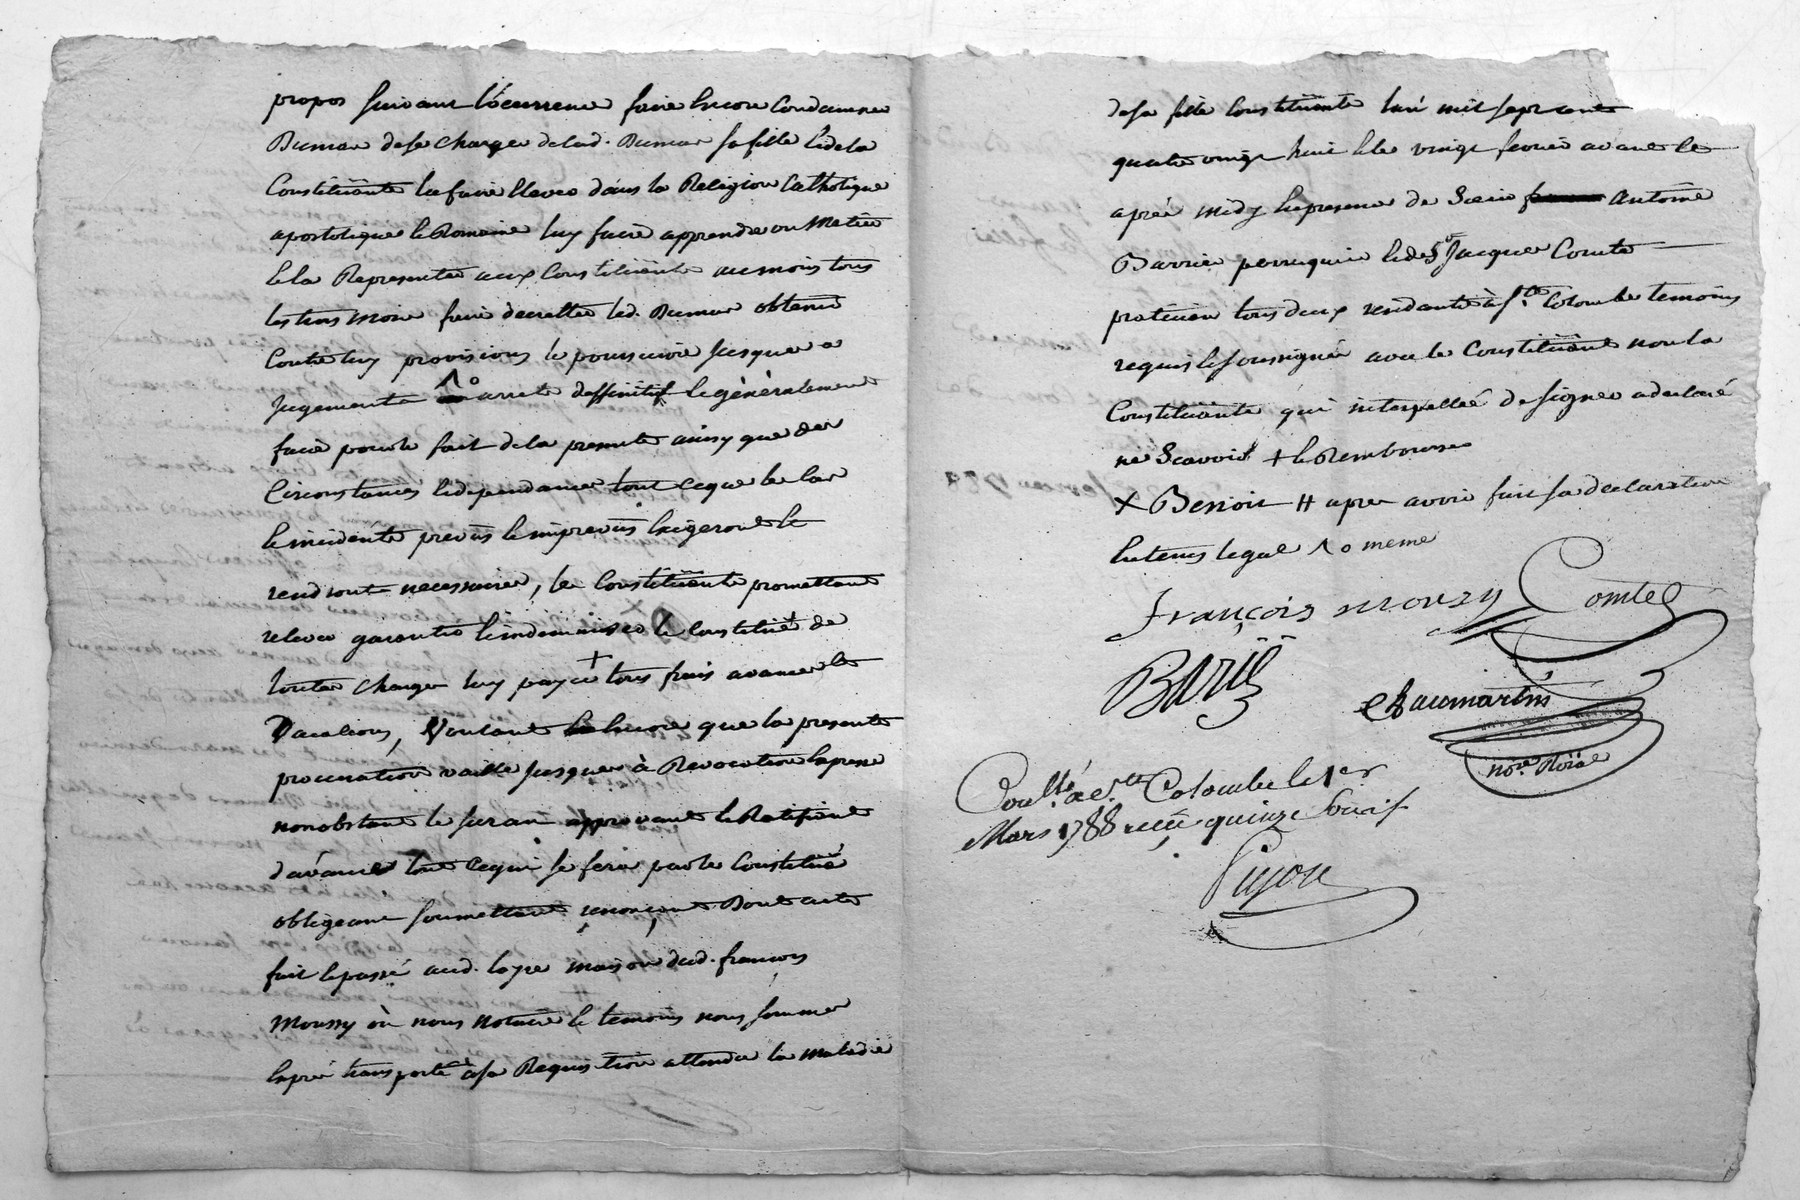 propos suivant l'ocurrence faire encore Condamner
Dumas de se charger de lad. Dumas sa fille & de la
Constituante la faire Elever dans la Religion Catholique
apostolique & Romaine luy faire apprendre un Metier
& la Representer aux Constituents au moins tous
les trois mois faire decretter led. Dumas obtenir
Contre luy provisions le poursuivre jusques a
jugements arrets deffinitif & generalement
faire pour le fait de la presente ainsy que des
Circonstances & dependances tout ce que le cas
& incidents prevus & imprevus Exigeront &
rendront necessaires, les Constituants promettant
relever garantir & indemniser le Constitué de
toutes charges luy payer + tous frais avances &
Vacations, Voulant Encore que la presente
procuration vaille jusques à Revocation Expresse
nonobstant le suran approuvant & Ratifiant
d'avance tout cequi se fera par le Constitué
obligeant soumettant renonçant Dont acte
fait & passé aud. lieu maison dud. françois
Moussy où nous Notaire & temoins nous sommes
Exprès transporté à sa Requisition attendu la maladie
de sa fille Constituante l'an mil sept cent
quatre vingt huit & le vingt fevrier avant &
après midy En presence de Sieur Antoine
Barrier perruquier & de Sr. Jacques Comte
praticien tous deux residants à Ste. Colombe temoins
requis & soussignés avec le Constituant non la
Constituante qui interpellée de signer a declaré
ne Scavoir + & Rembourser
x Benoit # apres avoir fait sa declaration
En tems legal ^o meme
François mousy Comte
Barié
Chaumartin
nore. Roïal
Conllé. a Ste Colombe le 1er
Mars 1788 recû quinze sous
Pijon